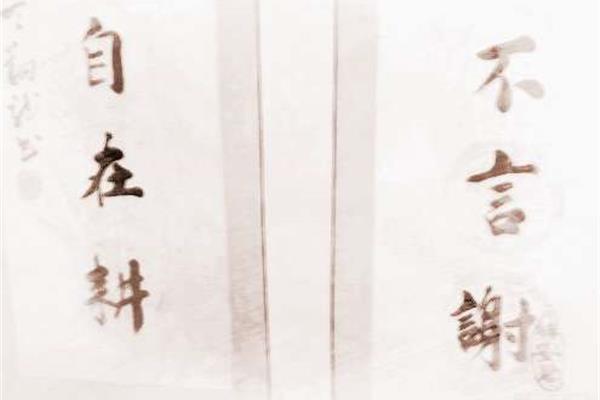 不言謝
自在耕